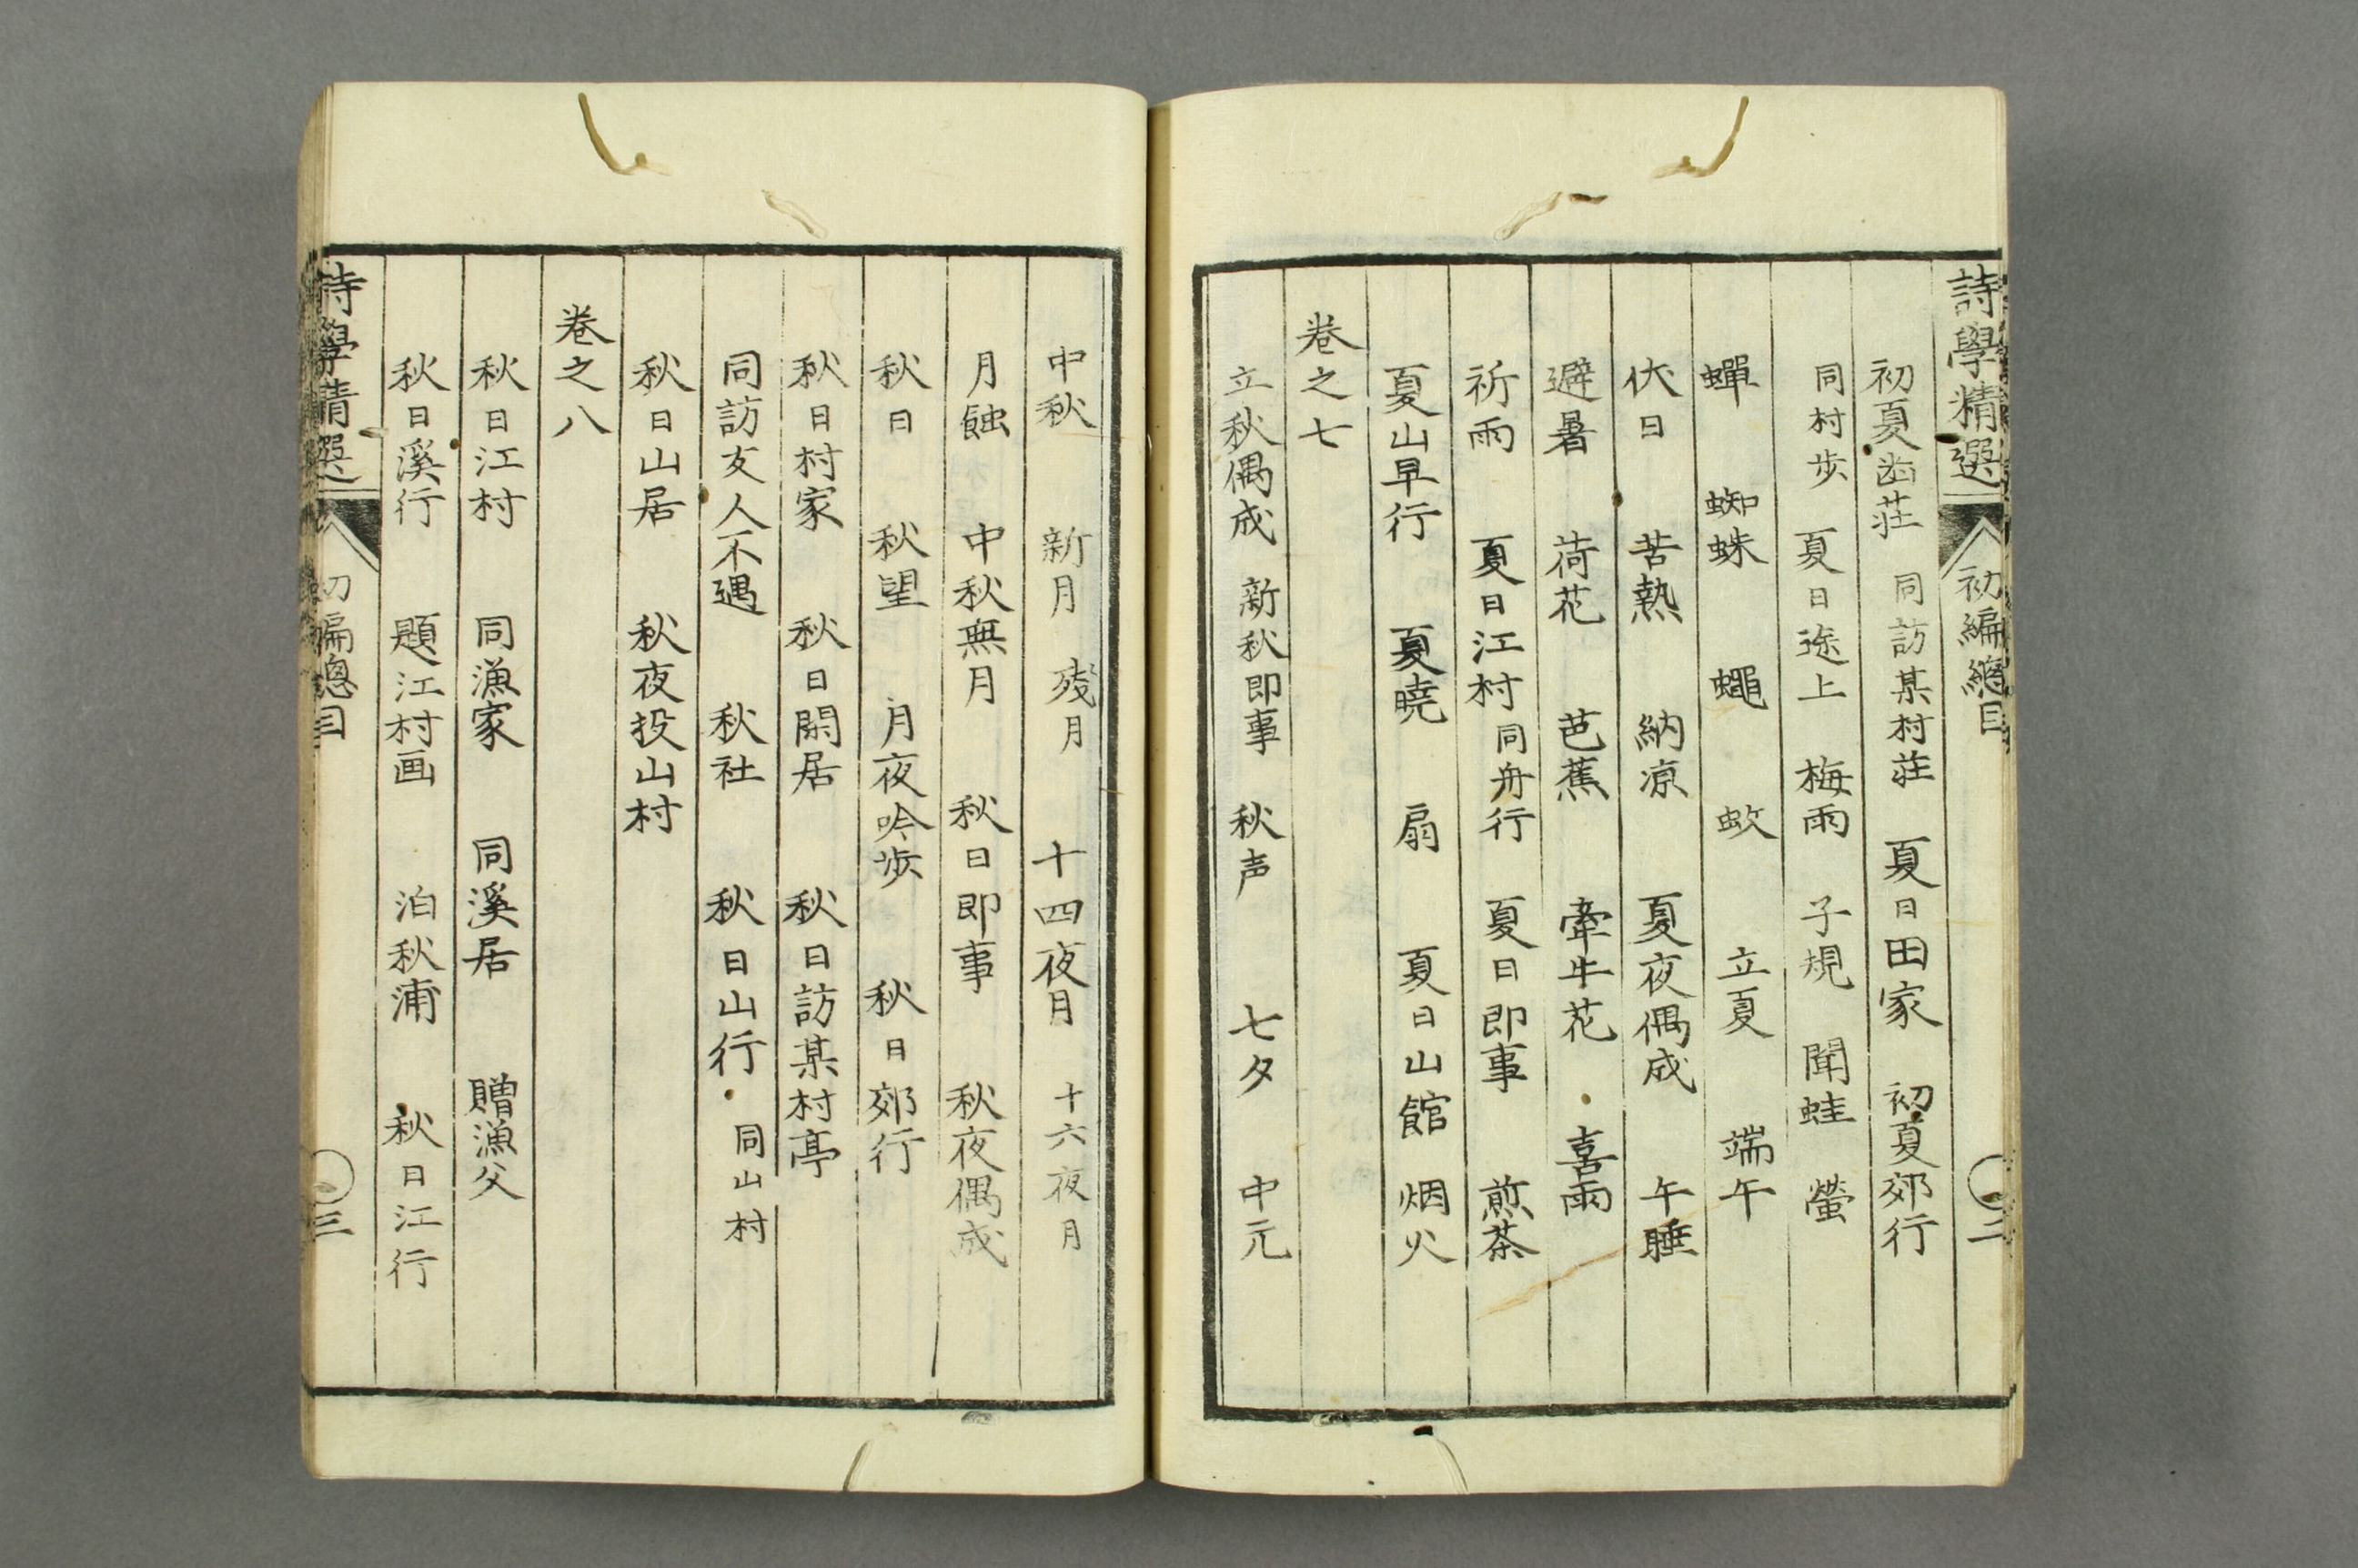 詩學精選 初編總目 二
初夏幽荘 同訪某村荘 夏日田家 初夏郊行
同村歩 夏日途上 梅雨 子規 聞蛙 螢
蟬 蜘蛛 蠅 蚊 立夏 端午
伏日 苦熱 納凉 夏夜偶成 午睡
避暑 荷花 芭蕉 牽牛花 喜雨
祈雨 夏日江村 同舟行 夏日即事 煎茶
夏山早行 夏曉 扇 夏日山館 烟火
巻之七
立秋偶成 新秋即事 秋声 七夕 中元
中秋 新月 残月 十四夜月 十六夜月
月蝕 中秋無月 秋日即事 秋夜偶成
秋日 秋望 月夜吟歩 秋日郊行
秋日村家 秋日閑居 秋日訪某村亭
同訪友人不遇 秋社 秋日山行 同山村
秋日山居 秋夜投山村
巻之八
秋日江村 同漁家 同溪居 贈漁父
秋日溪行 題江村画 泊秋浦 秋日江行
詩學精選 初編總目 三